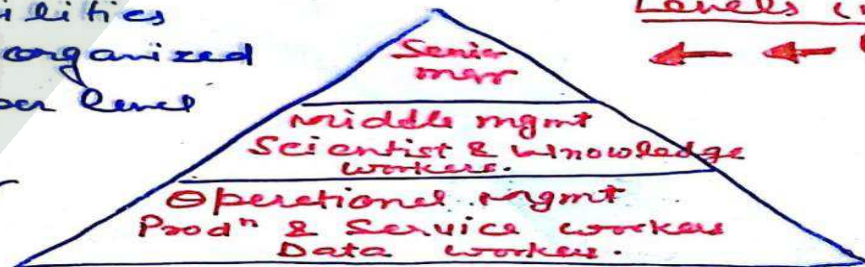 ilities
organized
per level
Levels (
Senior
mgmt
Middle mgmt
Scientist & knowledge
workers.
Operational Mgmt
Prodⁿ & Service workers
Data workers.